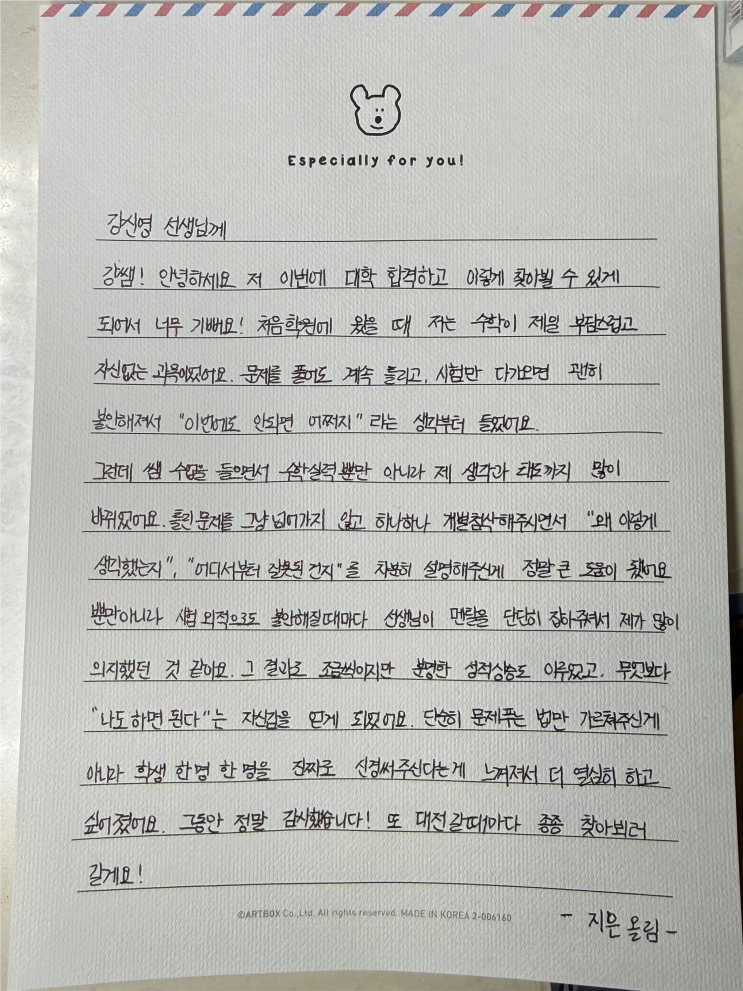 Especially for you!
강신영 선생님께
강쌤! 안녕하세요 저 이번에 대학 합격하고 이렇게 찾아뵐 수 있게
되어서 너무 기뻐요! 처음 학원에 왔을 때 저는 수학이 제일 부담스럽고
자신없는 과목이었어요. 문제를 풀어도 계속 틀리고, 시험만 다가오면 괜히
불안해져서 "이번에도 안되면 어쩌지" 라는 생각부터 들었어요.
그런데 쌤 수업을 들으면서 수학실력 뿐만 아니라 제 생각과 태도까지 많이
바뀌었어요. 틀린 문제를 그냥 넘어가지 않고 하나하나 개별첨삭해주시면서 "왜 이렇게
생각했는지", "어디서부터 잘못된 건지"를 차분히 설명해주신게 정말 큰 도움이 됐어요
뿐만아니라 시험 외적으로도 불안해질때마다 선생님이 멘탈을 단단히 잡아주셔서 제가 많이
의지했던 것 같아요. 그 결과로 조금씩이지만 분명한 성적상승도 이루었고, 무엇보다
"나도 하면 된다"는 자신감을 얻게 되었어요. 단순히 문제푸는 법만 가르쳐주신게
아니라 학생 한명 한 명을 진짜로 신경써주신다는게 느껴져서 더 열심히 하고
싶어졌어요. 그동안 정말 감사했습니다! 또 대전갈때마다 종종 찾아뵈러
갈게요!
©ARTBOX Co.,Ltd. All rights reserved. MADE IN KOREA 2-006160
- 지은 올림 -